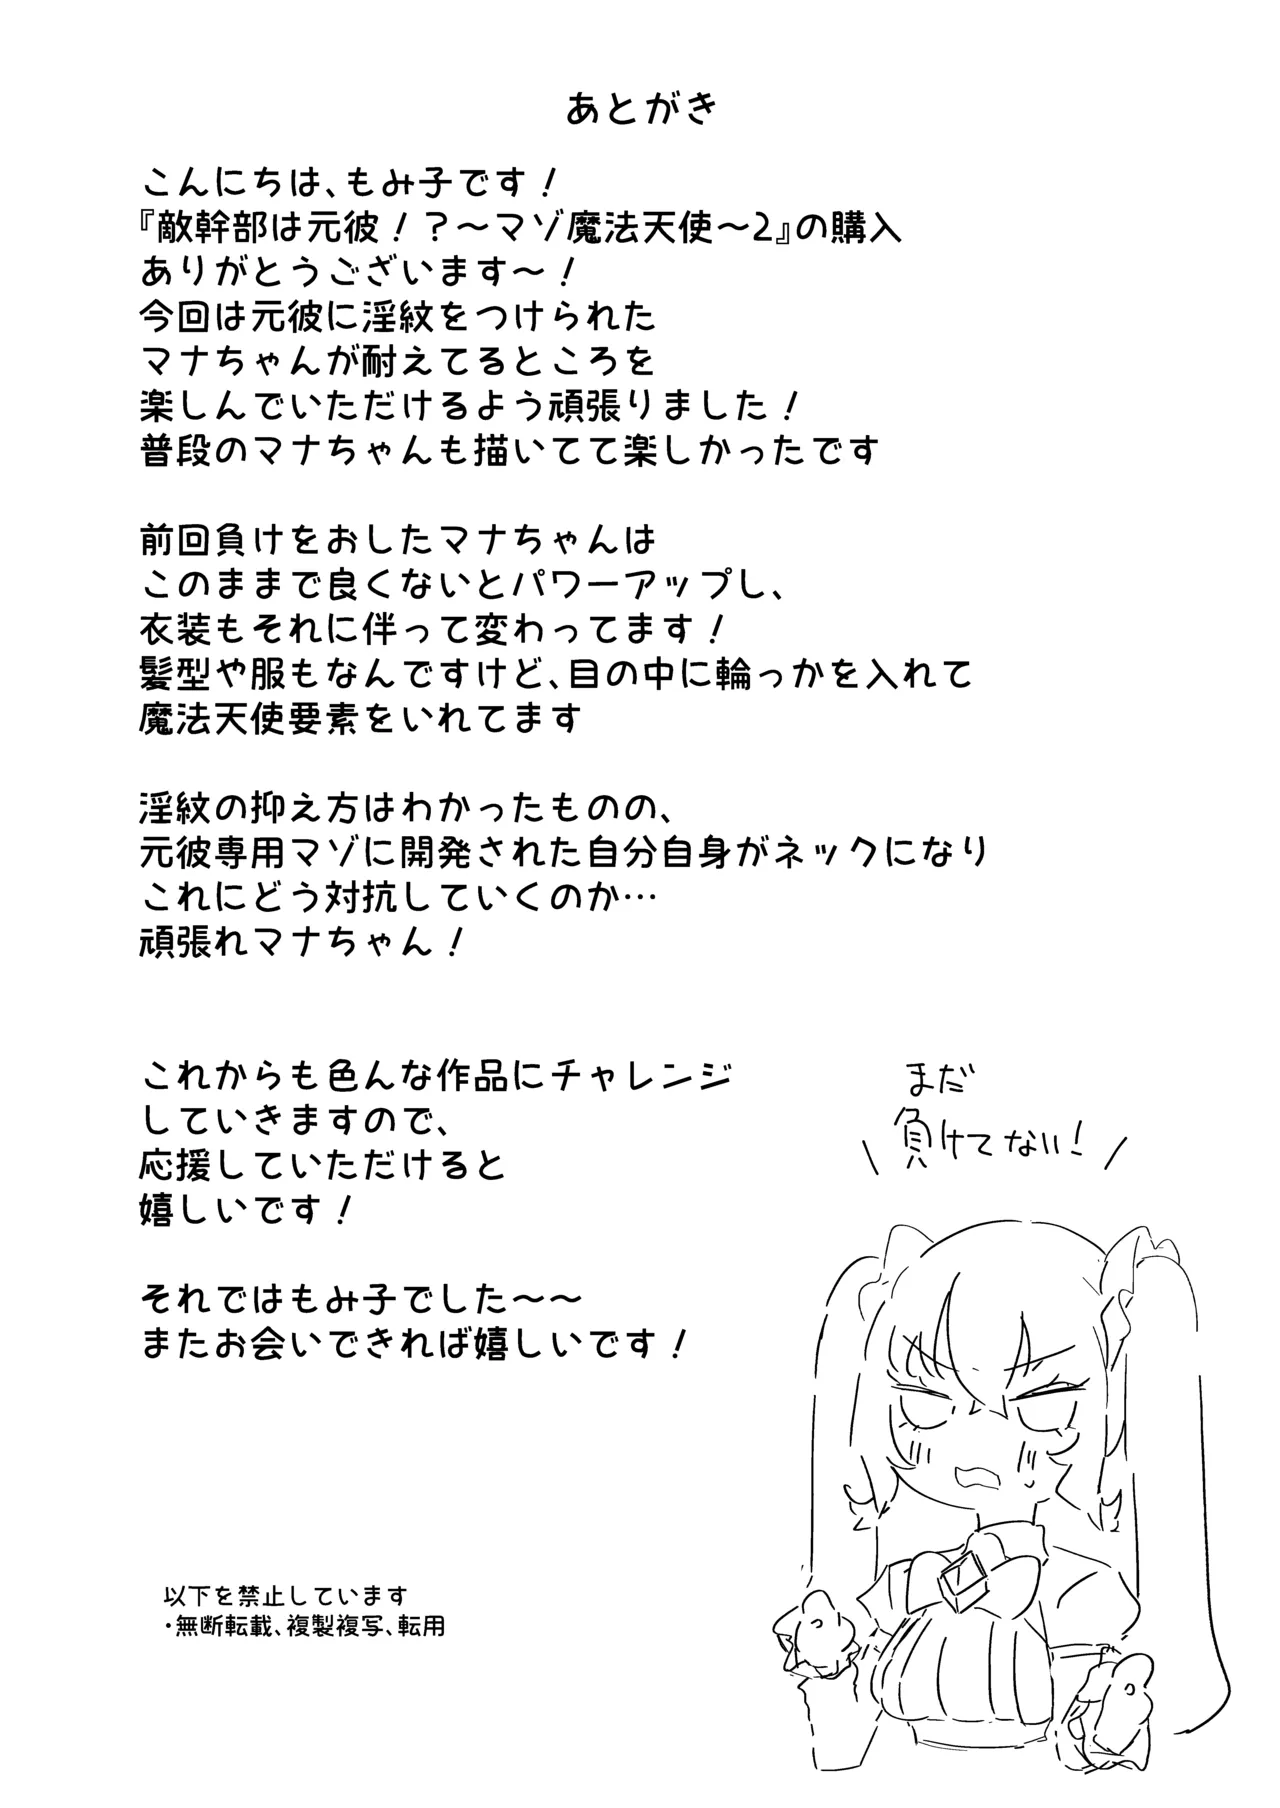 あとがき
こんにちは、もみ子です！
『敵幹部は元彼！？～マゾ魔法天使～2』の購入
ありがとうございます～！
今回は元彼に淫紋をつけられた
マナちゃんが耐えてるところを
楽しんでいただけるよう頑張りました！
普段のマナちゃんも描いてて楽しかったです
前回負けをおしたマナちゃんは
このままで良くないとパワーアップし、
衣装もそれに伴って変わってます！
髪型や服もなんですけど、目の中に輪っかを入れて
魔法天使要素をいれてます
淫紋の抑え方はわかったものの、
元彼専用マゾに開発された自分自身がネックになり
これにどう対抗していくのか…
頑張れマナちゃん！
これからも色んな作品にチャレンジ
していきますので、
応援していただけると
嬉しいです！
それではもみ子でした～～
またお会いできれば嬉しいです！
まだ
負けてない！
以下を禁止しています
・無断転載、複製複写、転用